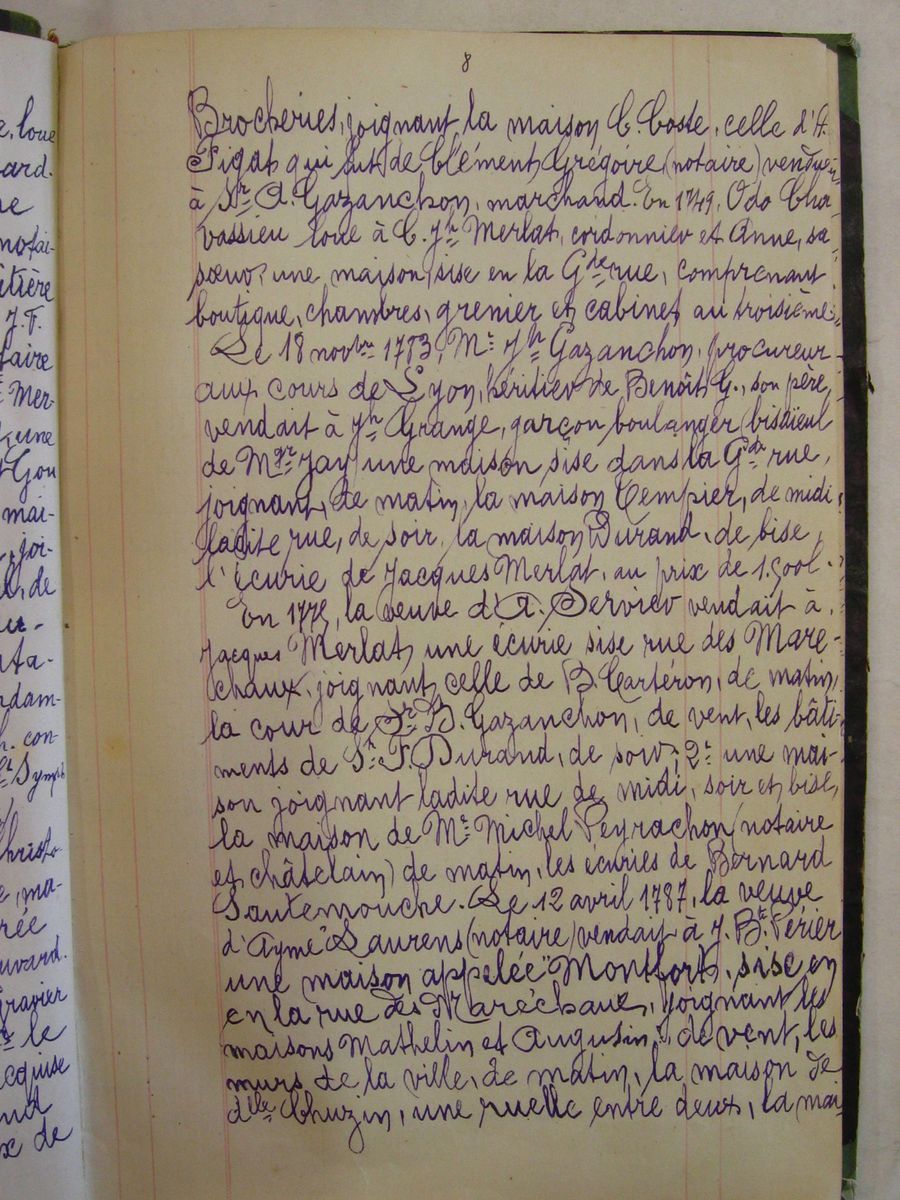 8
Brocheries, joignant la maison C. Coste, celle d'A.
Figat qui fut de Clément Grégoire (notaire) vendue
à Sr A. Gazanchon, marchand. En 1749, Odo Cha-
vassieu loue à C. Jh Merlat, cordonnier et Anne, sa
sœur, une maison, sise en la Gde rue, comprenant
boutique, chambres, grenier et cabinet au troisième.
Le 18 novbre 1783, Mr Jh Gazanchon, procureur
aux cours de Lyon, héritier de Benoît G., son père,
vendait à Jh Grange, garçon boulanger (bisaïeul
de Mgr Jay) une maison sise dans la Gde rue,
joignant, de matin, la maison Tempier, de midi
ladite rue, de soir, la maison Durand, de bise,
l'écurie de Jacques Merlat, au prix de 1.500l.
En 1775, la veuve d'A. Servier vendait à
Jacques Merlat, une écurie sise rue des Maré-
chaux, joignant, celle de B. Cartéron, de matin,
la cour de Sr B. Gazanchon, de vent, les bâti-
ments de Sr F. Durand, de soir; 2° une mai-
son joignant ladite rue de midi, soir et, bise,
la maison de Mr Michel Peyrachon (notaire
et châtelain) de matin, les écuries de Bernard
Sautemouche. Le 12 avril 1787, la veuve
d'Aymé Laurens (notaire) vendait à J. Bte Périer
une maison appelée "Montfort", sise en
en la rue des Maréchaux, joignant les
maisons Mathelin et Augustin, de vent, les
murs de la ville, de matin, la maison de
delle Chuzin, une ruelle entre deux, la mai-
ard.
Mer-
Gou
mai-
joi-
de
con-
ma-
rée
le
x de